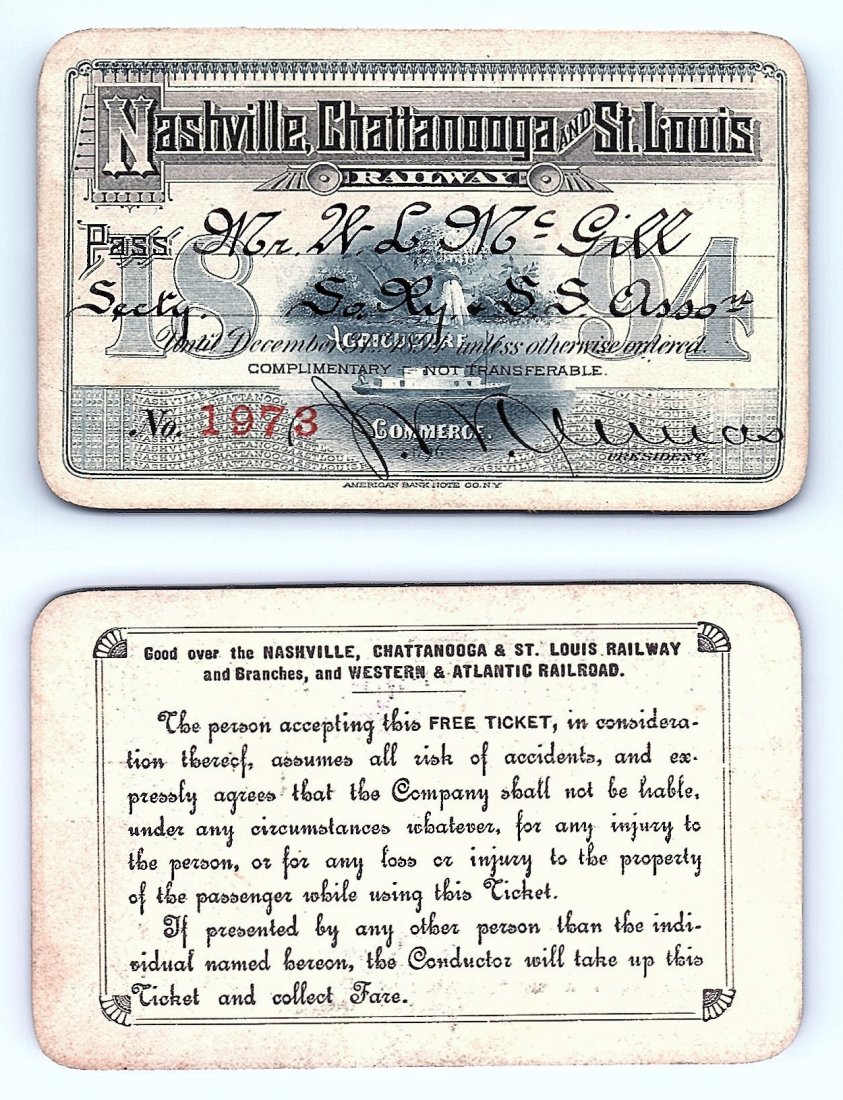 Nashville, Chattanooga AND St. Louis
RAILWAY
Pass Mr. W. L. McGill
18 94
Secty. So. Ry. & S. S. Asso n
AGRICULTURE
Until December 31st 1894 unless otherwise ordered.
COMPLIMENTARY NOT TRANSFERABLE.
No. 1973
COMMERCE.
PRESIDENT.
AMERICAN BANK NOTE CO. N.Y.
Good over the NASHVILLE, CHATTANOOGA & ST. LOUIS RAILWAY
and Branches, and WESTERN & ATLANTIC RAILROAD.
The person accepting this FREE TICKET, in considera-
tion thereof, assumes all risk of accidents, and ex-
pressly agrees that the Company shall not be liable,
under any circumstances whatever, for any injury to
the person, or for any loss or injury to the property
of the passenger while using this Ticket.
If presented by any other person than the indi-
vidual named hereon, the Conductor will take up this
Ticket and collect Fare.